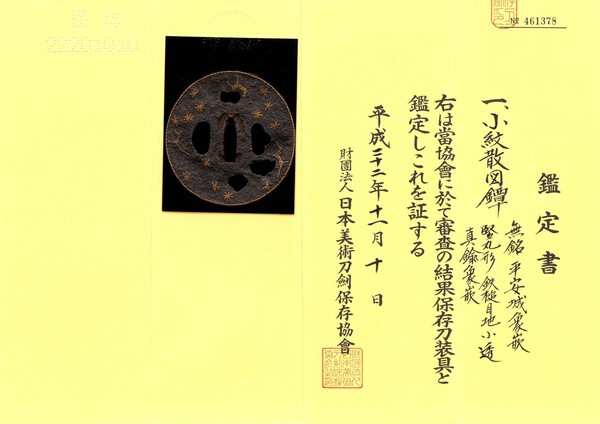 № 461378
鑑定書
一、小紋散図鐔
無銘 平安城象嵌
竪丸形 鉄槌目地 小透
真鍮象嵌
右は當協會に於て審査の結果保存刀装具と
鑑定しこれを証する
平成二十二年十一月十日
財團法人 日本美術刀劍保存協會